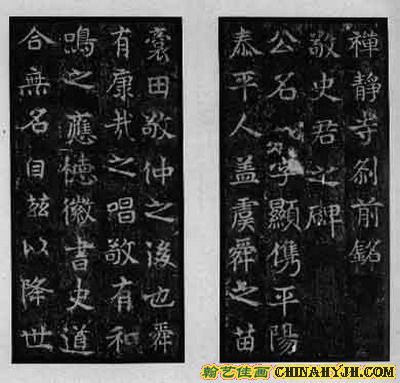 禪靜寺刹前銘
敬史君之碑
公名字顯儁平陽
泰平人蓋虞舜之苗
裔田敬仲之後也舜
有康哉之唱敬有和
鳴之應德徽書史道
合無名自茲以降世
翰艺佳画 CHINAHYJH.COM